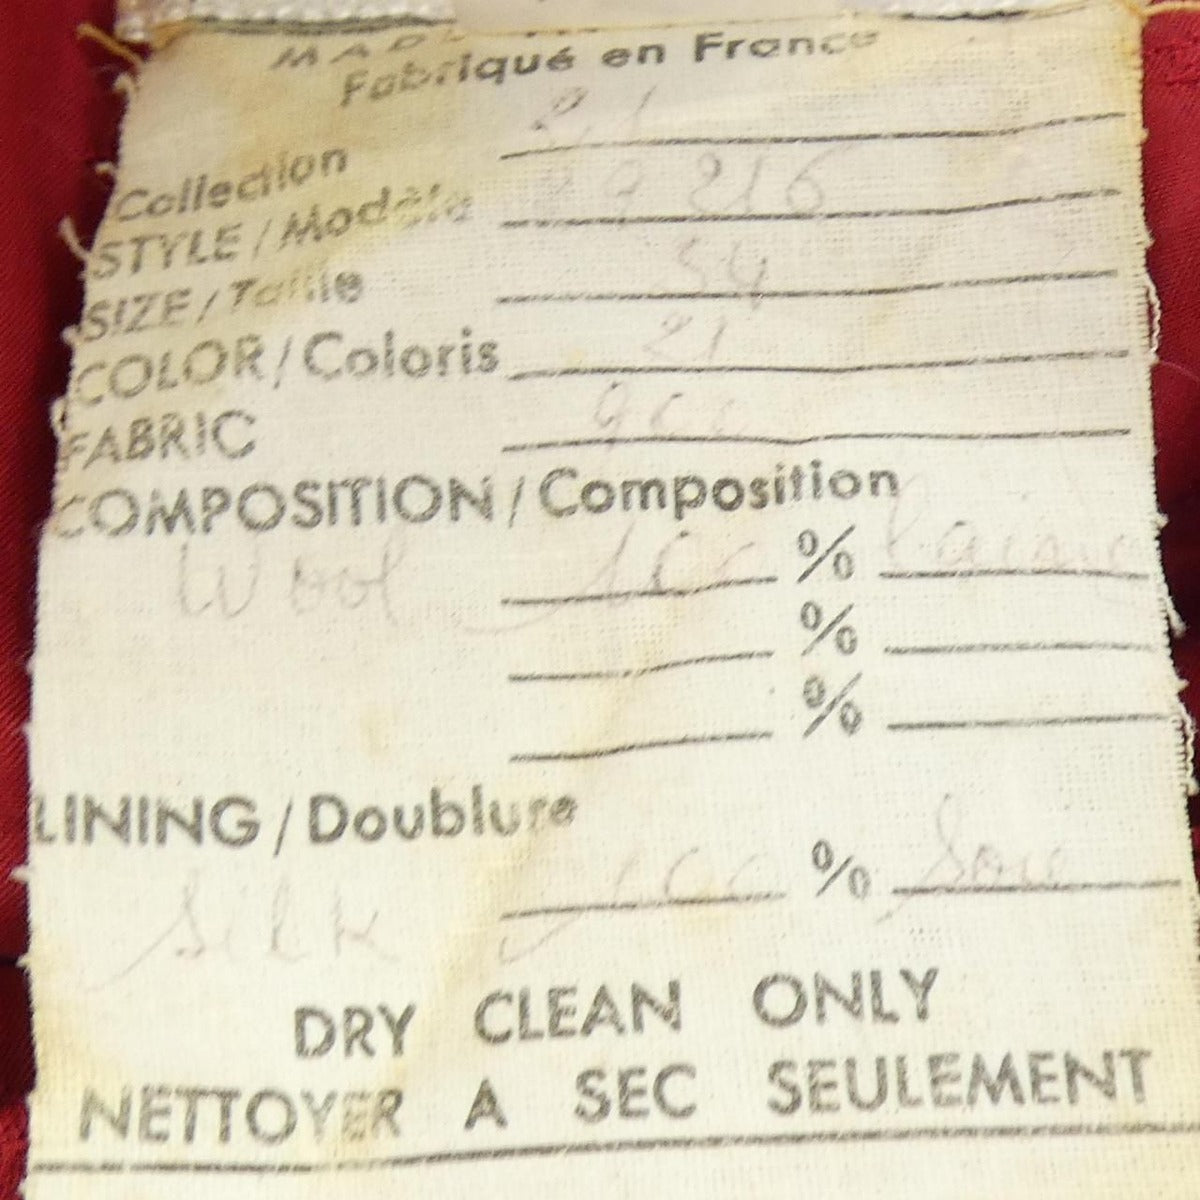 MADE
Fabriqué en France
Collection 21
STYLE / Modèle 216
SIZE / Taille 34
COLOR / Coloris 21
FABRIC
COMPOSITION / Composition
Wool 100 % Laine
%
%
LINING / Doublure
Silk 100 % Soie
DRY CLEAN ONLY
NETTOYER A SEC SEULEMENT